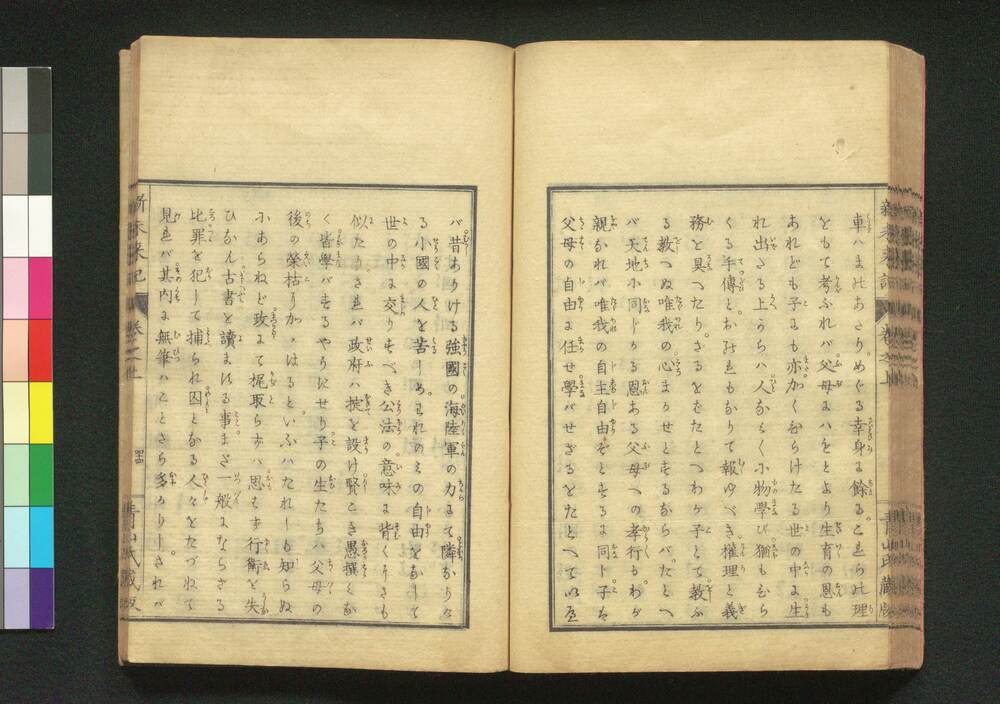 車ハまはあさりめぐる幸身に餘るこれらの理
ともて考ふれバ父母にハをとより生育の恩も
あれども子にも亦かく色らけたる世の中に生
れ出さる上からハ人なみに物學び猶もひら
くる手傳とおのれもなりて報ゆべき權理と義
務と具へたりさるをたとつわが子とて教ふ
る教へぬ唯我の心まかせとするならバたとへ
バ天地に同トかる恩ある父母への孝行もわが
親なれバ唯我の自主自由ぞとするに同ト子を
父母の自由に任せ學バせざるをたとへていハ
バ昔ありける強國の海陸軍の力にて隣なりけ
る小國の人を苦しめそれのミの自由をなして
世の中に交りすべき公法の意味に背くりさも
似たりされバ政府ハ掟を設け賢こき愚撰ミな
く皆學バするやうにせり子の生たちハ父母の
後の榮枯りかゝはるといふハたれしも知らぬ
にあらねど孜にて梶取らずハ思もず行衛を失
ひなん古書を讀まれる事まさ一般にならざる
比罪を犯して捕られ囚となる人々をたづねて
見れバ其内に無筆ハことさら多かりしされバ
新未來記
卷之上
青山氏藏版